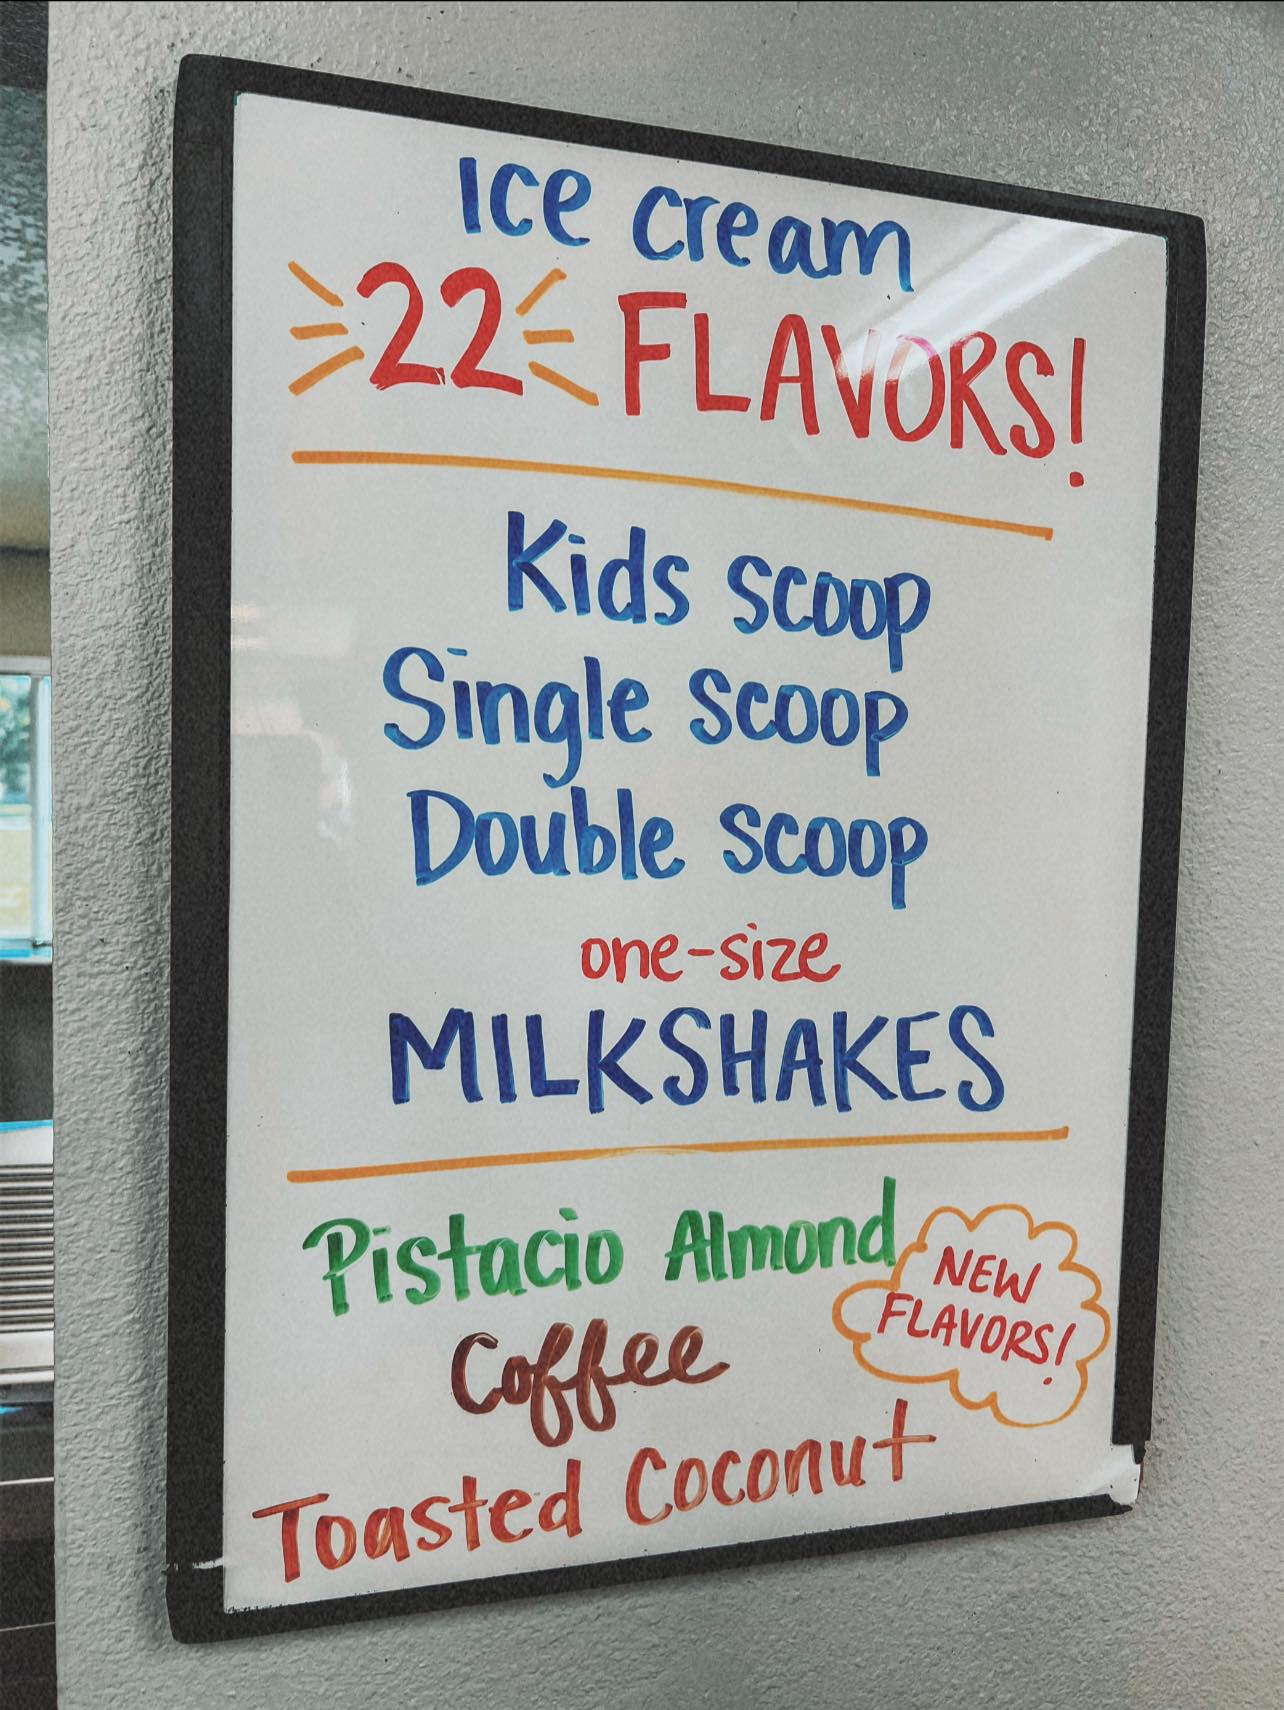 Ice cream
22 FLAVORS!
Kids scoop
Single scoop
Double scoop
one-size
MILKSHAKES
Pistacio Almond
NEW
FLAVORS!
Coffee
Toasted Coconut